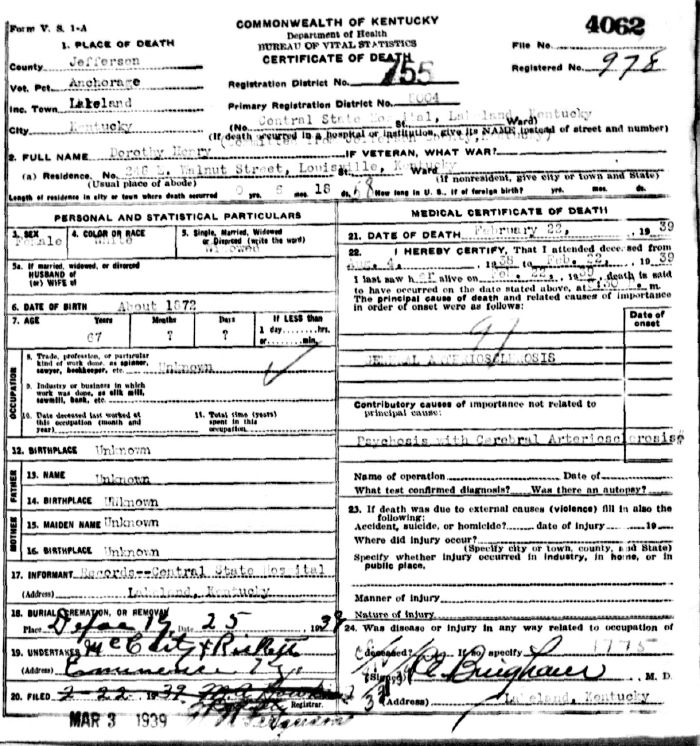 Form V. S. 1-A
COMMONWEALTH OF KENTUCKY
Department of Health
BUREAU OF VITAL STATISTICS
CERTIFICATE OF DEATH
4062
File No.
Registered No. 978
1. PLACE OF DEATH
County Jefferson
Vot. Pct. Anchorage
Inc. Town Lakeland
City Kentucky
Registration District No. 755
Primary Registration District No.
(No. Central State Hospital, Lakeland, Kentucky St. Ward)
(If death occurred in a hospital or institution, give its NAME instead of street and number)
2. FULL NAME Dorothy Henry IF VETERAN, WHAT WAR?
(a) Residence. No. Walnut Street, Louisville, Kentucky St. Ward
(Usual place of abode) (If nonresident, give city or town and State)
Length of residence in city or town where death occurred yrs. mos. 18 ds. How long in U. S., if of foreign birth? yrs. mos. ds.
PERSONAL AND STATISTICAL PARTICULARS
3. SEX Female
4. COLOR OR RACE White
5. Single, Married, Widowed or Divorced (write the word) Widowed
5a. If married, widowed, or divorced
HUSBAND of
(or) WIFE of
6. DATE OF BIRTH About 1872
7. AGE Years Months Days If LESS than
67 ? ? 1 day, hrs.
or min.
OCCUPATION
8. Trade, profession, or particular
kind of work done, as spinner,
sawyer, bookkeeper, etc. Unknown
9. Industry or business in which
work was done, as silk mill,
sawmill, bank, etc.
10. Date deceased last worked at
this occupation (month and
year)
11. Total time (years)
spent in this
occupation
12. BIRTHPLACE Unknown
FATHER
13. NAME Unknown
14. BIRTHPLACE Unknown
MOTHER
15. MAIDEN NAME Unknown
16. BIRTHPLACE Unknown
17. INFORMANT Records--Central State Hospital
(Address) Lakeland, Kentucky
18. BURIAL, CREMATION, OR REMOVAL
Place Date 25 19
19. UNDERTAKER
(Address) Eminence Ky
20. FILED 2-22- 19 39
Registrar.
MAR 3 1939
MEDICAL CERTIFICATE OF DEATH
21. DATE OF DEATH February 22, 1939
22. I HEREBY CERTIFY, That I attended deceased from
Aug. 4, 1938 to Feb. 22, 1939
I last saw her alive on Feb. 22, 1939 death is said
to have occurred on the date stated above, at m.
The principal cause of death and related causes of importance
in order of onset were as follows:
Date of
onset
GENERAL ARTERIOSCLEROSIS
Contributory causes of importance not related to
principal cause:
Psychosis with Cerebral Arteriosclerosis
Name of operation Date of
What test confirmed diagnosis? Was there an autopsy?
23. If death was due to external causes (violence) fill in also the
following:
Accident, suicide, or homicide? date of injury 19
Where did injury occur?
(Specify city or town, county, and State)
Specify whether injury occurred in industry, in home, or in
public place.
Manner of injury
Nature of injury
24. Was disease or injury in any way related to occupation of
deceased? If so, specify 1775
(Signed) Bingham M. D.
(Address) Lakeland, Kentucky